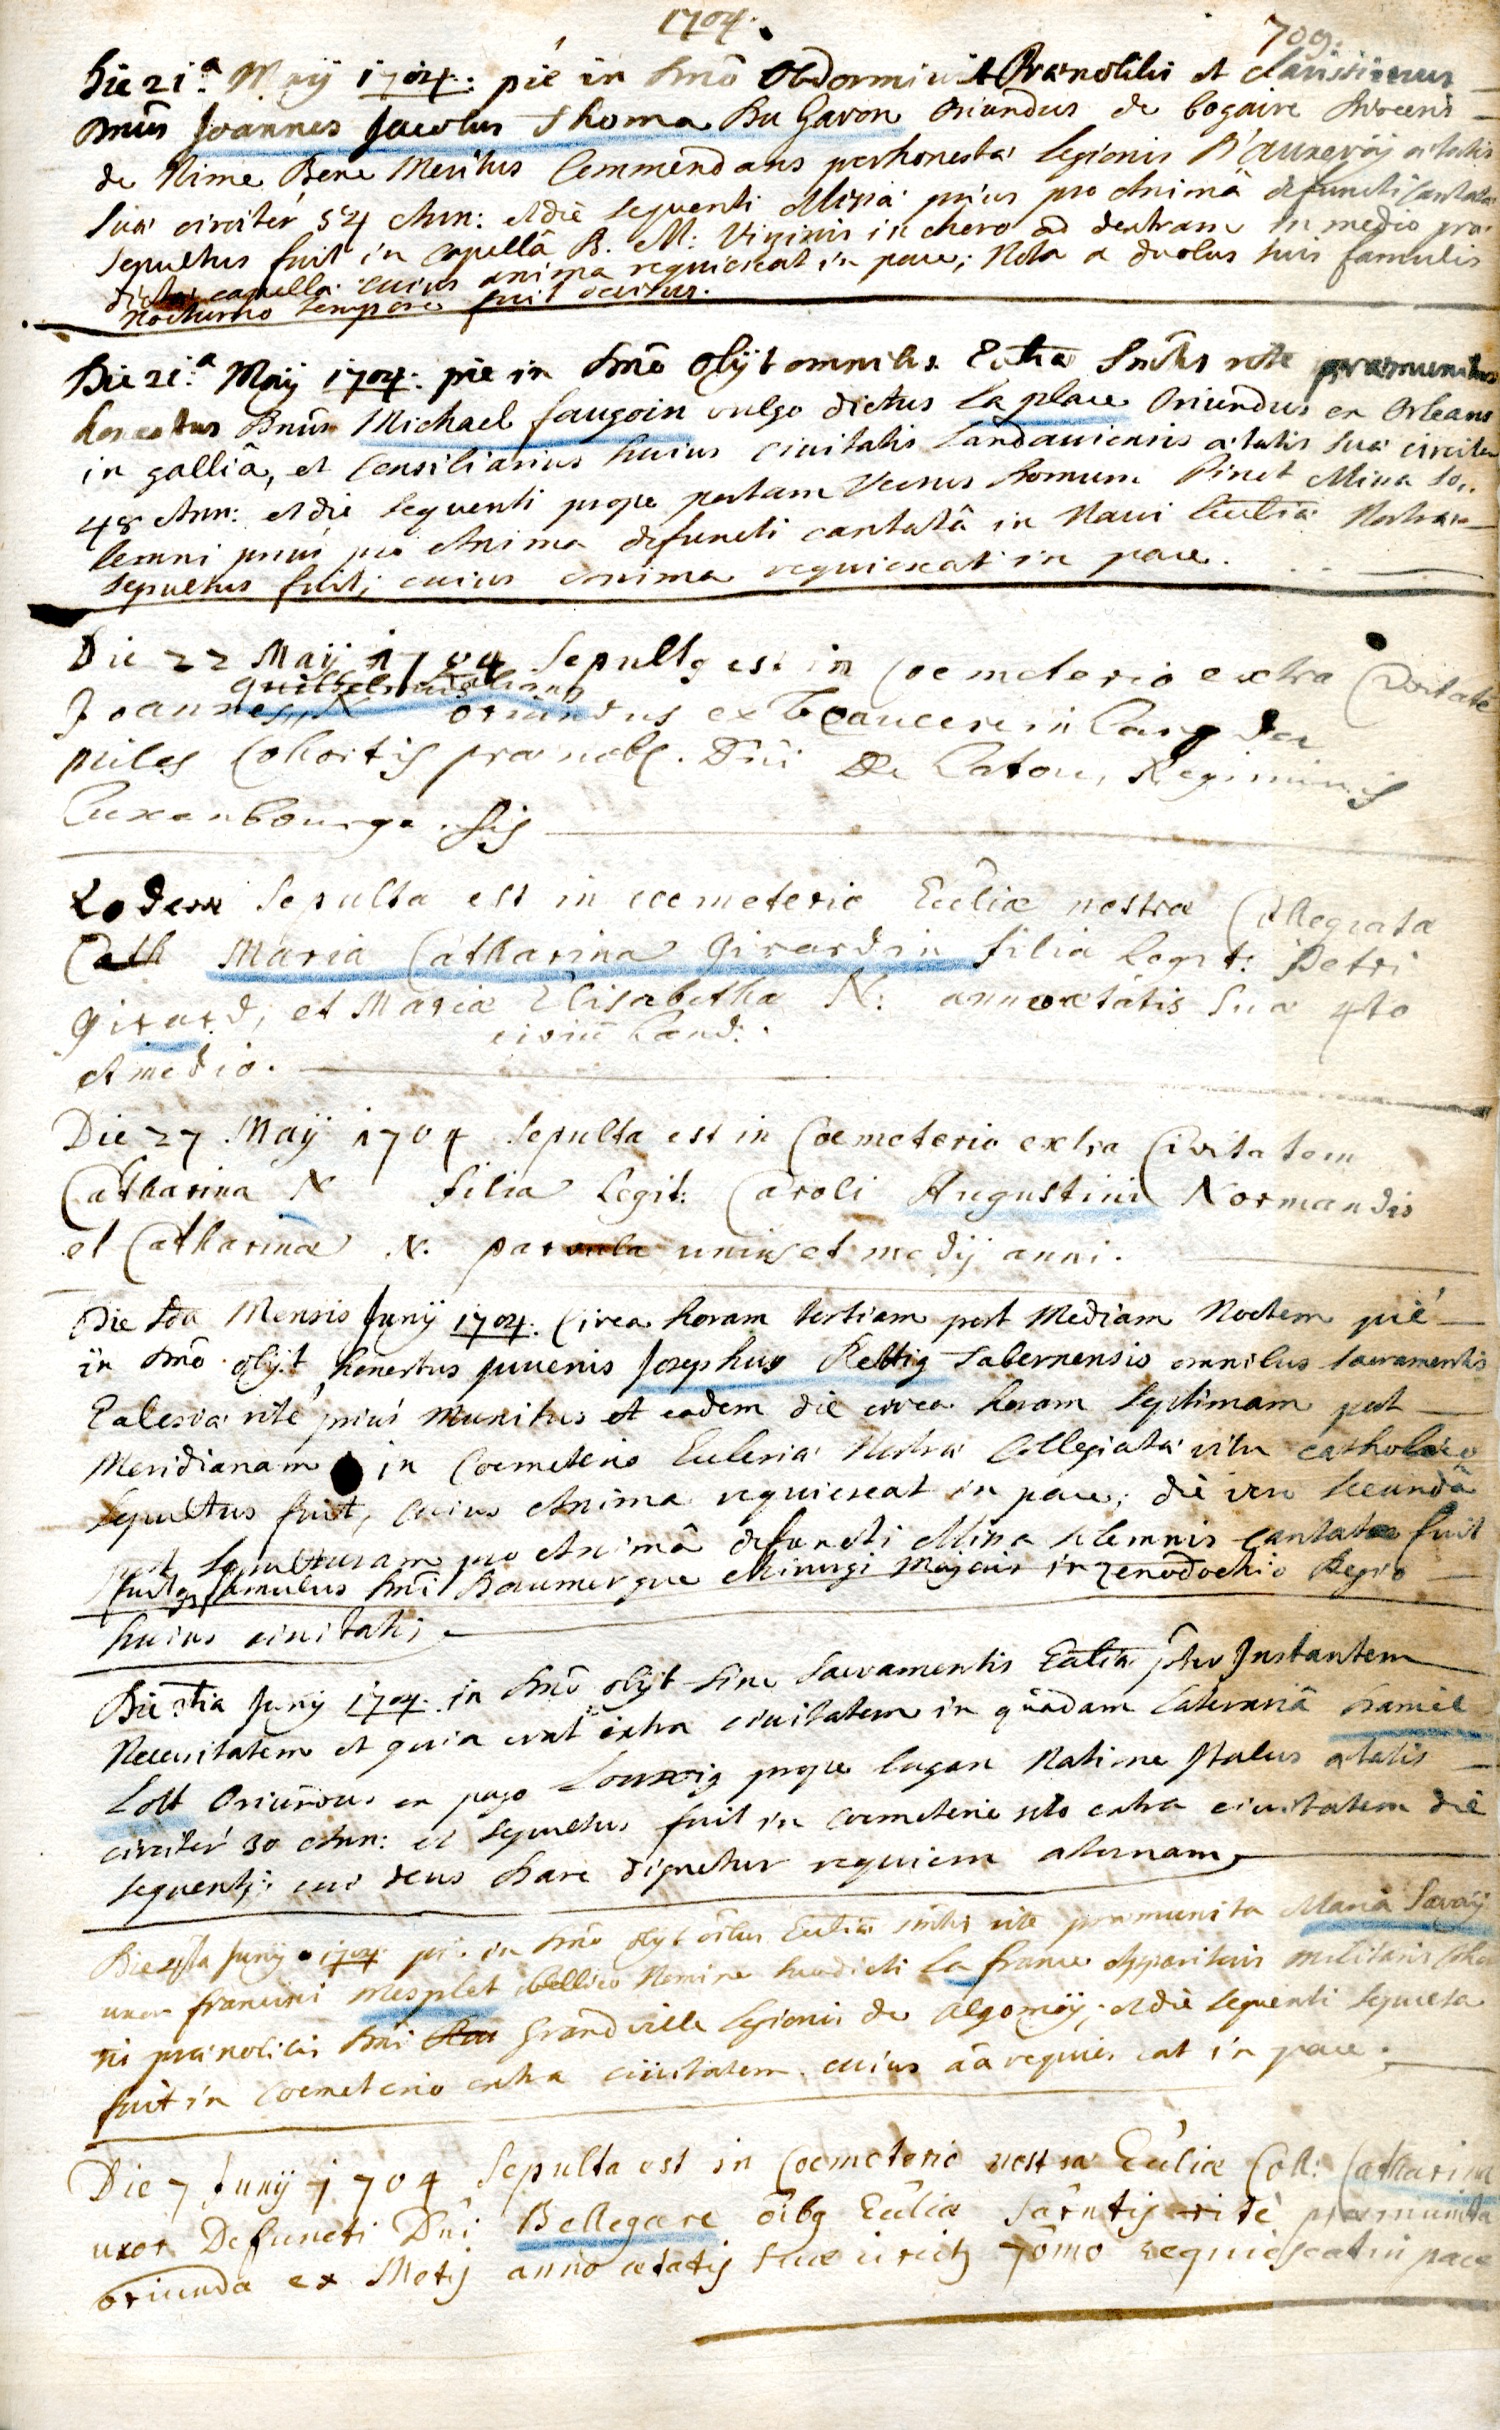 1704.
709.
Die 21.a Maÿ 1704. pié in Dnõ Obdormivit Prænobilis et Clarissimus
Dnũs Joannes Jacobus Thoma Du Gavon Oriundus de Bogaire Diœcesis
de Nime Bene Meritus Commendans perhonesta Legionis D'auneroÿ ætatis
Suæ circiter 54 Ann: et die sequenti Missa prius pro Animâ defuncti Cantata
Sepultus fuit in Capellâ B. M: Virginis in choro ad dextram in medio præ-
dictæ capellæ. cuius anima requiescat in pace; Nota a duobus suis famulis
Nocturno tempore fuit occisus.
Die 21.a Maÿ 1704. pie in Dnõ Obÿt omnibs. Ecclia Smtis rite præmunitus
honestus Dnũs Michael faugoin vulgo dictus La place Oriundus ex Orleans
in galliâ, et Consiliarius huius Civitatis Landaviensis ætatis suæ circiter
48 Ann: et die sequenti prope portam Versus Domum Pinot Missa so-
lemni prius pro Anima defuncti cantatâ in Navi Eccliæ Nostræ
Sepultus fuit; cuius anima requiescat in pace.
Die 22 Maÿ 1704 Sepultg est in Coemeterio extra Civitatē
Joannes N oriundus ex Beaucere in Langdoc
miles Cohortis prænobl. Dñi De Laton, Regiminis
Luxenbourgensis
Eodem Sepulta est in coemeterio Eccliæ nostræ Collegiata
Cath Maria Catharina Girardin filia Legit: Petri
Girard, et Mariæ Elisabethæ N: anno ætatis suæ 4to
civiũ Land:
et medio.
Die 27 Maÿ 1704 Sepulta est in Coemeterio extra Civitatem
Catharina N filia Legit: Caroli Augustini Normandis
et Catharinæ N. parvula unius et medÿ anni.
Die 2da Mensis Junÿ 1704. Circa horam tertiam post Mediam Noctem pié
in Dnõ obÿt honestus juvenis Josephus Rettig Tabernensis omnibus Sacramentis
Ecclesiæ rité prius Munitus et eadem die circa horam Septimam post
Meridianam in Coemeterio Ecclesiæ Nostræ Collegiatæ ritu catholico
Sepultus fuit, cuius Anima requiescat in pace; die vero Secundâ
post Sepulturam pro Animâ defuncti Missa Solemnis cantata fuit
fuitq famulus Dni Baumergue Chirurgi Majoris in Xenodochio Regio
huius civitatis
Die 3tia Junÿ 1704. in Dnõ obÿt sine Sacramentis Eccliæ ppter Instantem
Necessitatem et quia erat extra civitatem in quâdam Laterariâ Daniel
Lott Oriundus ex pago Lonvvig prope Lugan Natione Italus ætatis
circiter 30 Ann: et Sepultus fuit in Coemeterio sito extra civitatem die
sequenti; cui deus Dare dignetur requiem æternam
Die 4ta Junÿ 1704 pié in Dnõ obÿt oĩbus Eccliæ Smtis rite præmunita Maria Savaÿ
uxor francisci Mesplet bellico Nomine Suodicti La france Apparitoris militaris Cohor
tis prænobilis Dni Grandville Legionis de Algomÿ; et die sequenti Sepulta
fuit in Coemeterio extra civitatem. cuius āa requiescat in pace.
Die 7 Junÿ 1704 Sepulta est in Coemeterio nostræ Eccliæ Coll: Catharina
uxor Defuncti Dñi Bellegare oĩbg Eccliæ Sacrntis rité præmunita
oriunda ex Metis anno ætatis suæ circitr 70mo requiescat in pace